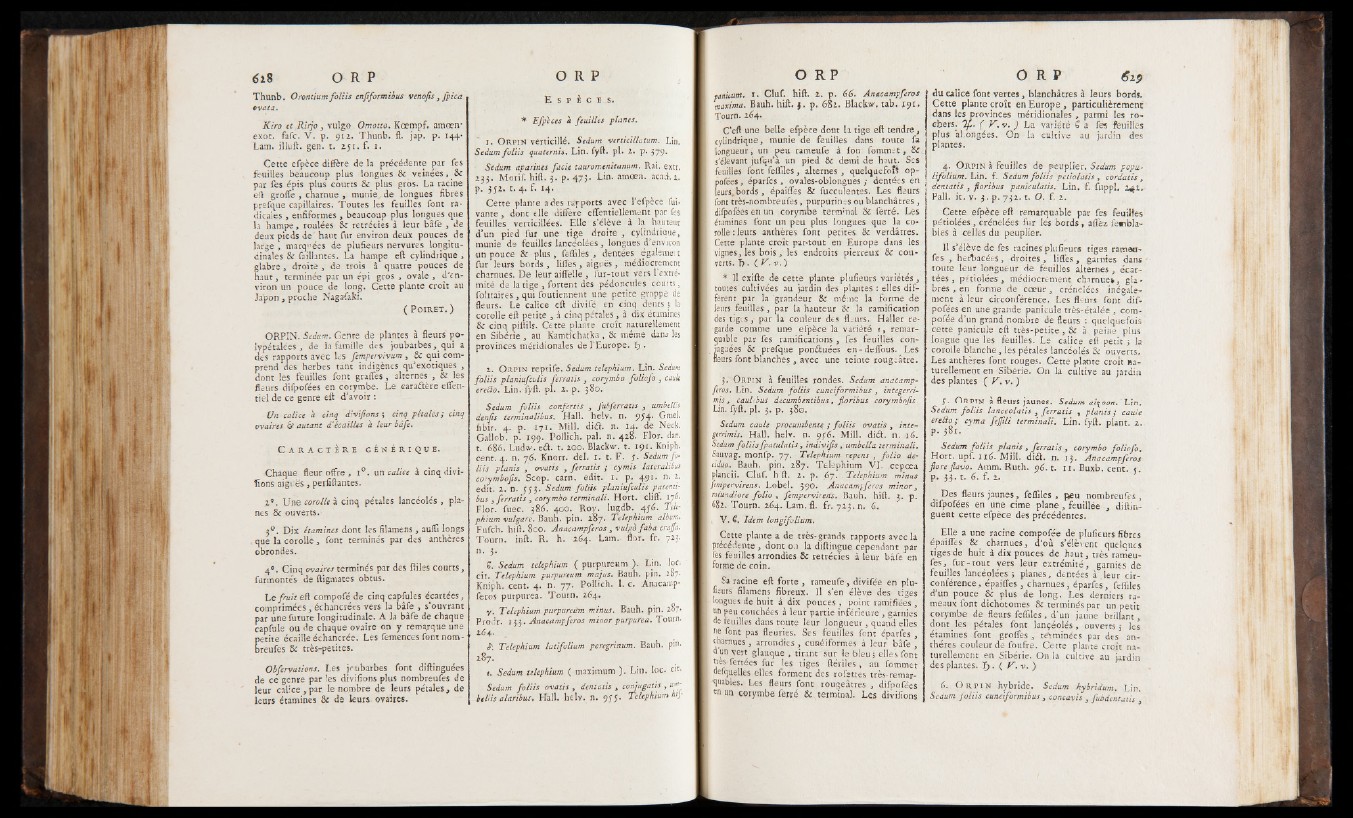 628 O R P
Thunb. Orontium foliis ensiformibus venosis, spica
ovata.
Kiro et Kirjo, vulgo Omotto. Kœmpf. amœn.
exot. fasc. V. p. 912. Thunb. fl. jap. p. 144.
Lam. illust. gen. t. 251. f. 1.
Cette espèce diffère de la précédente par ses
feuilles beaucoup plus longues & veinées, &
par ses épis plus courts & plus gros. La racine
est grosse, charnue, munie de longues fibres
presque capillaires. Toutes les feuilles sont ra-
dicales, ensiformes, beaucoup plus longues que
la hampe, roulées & retrécies à leur bâse, de
deux pieds de haut sur environ deux pouces de
large, marquées de plusieurs nervures longitu-
dinales & saillantes. La hampe est cylindrique,
glabre, droite, de trois à quatre pouces de
haut, terminée par un épi gros, ovale, d'en-
viron un pouce de long. Cette plante croît au
Japon, proche Nagasaki.
( POIRET. )
ORPIN. Sedum. Genre de plantes à fleurs po-
lypétalées, de la famille des joubarbes, qui a
des rapports avec les sempervivum, & qui com-
prend des herbes tant indigènes qu'exotiques,
dont les feuilles sont grasses, alternes, & les
fleurs disposées en corymbe. Le caractère essen-
tiel de ce genre est d'avoir :
Un calice à cinq divisions ; cinq pétales ; cinq
ovaires & autant d'écailles à leur bâse.
CARACTÈRE GÉNÉRIQUE.
Chaque fleur offre, 1°. un calice à cinq divi-
sions aiguës, persistantes.
2°. Une corolle à cinq pétales lancéolés, pla-
nes & ouverts.
3°. Dix étamines dont les filamens, aussi longs
que la corolle, sont terminés par des anthères
obrondes.
4°. Cinq ovaires terminés par des stiles courts,
surmontés de stigmates obtus.
Le fruit est composé de cinq capsules écartées,
comprimées, échancrées vers la bâse, s'ouvrant
par une suture longitudinale. A la bâse de chaque
capsule ou de chaque ovaire on y remarque une
petite écaille échancrée. Les semences sont nom-
breuses & très-petites.
Observations. Les joubarbes sont distinguées
de ce genre par les divisions plus nombreuses de
leur calice, par le nombre de leurs pétales, de
leurs étamines & de leurs ovaires.
O R P
ESPÈCES.
* Espèces à feuilles planes.
1. ORPIN verticillé. Sedum verticillatum. Lin.
Sedum foliis quaternis. Lin. syst. pl. 2. p. 379.
Sedum aparines facie tauromenitanum. Rai. extr.
235. Moris. hist. 3. p. 473. Lin. amœn. acad. 2.
p. 352. t. 4. f. 14.
Cette plante a des rapports avec l'espèce sui-
vante, dont elle diffère essentiellement par ses
feuilles verticillées. Elle s'élève à la hauteur
d'un pied sur une tige droite, cylindrique,
munie de feuilles lancéolées, longues d'environ
un pouce & plus, sessiles, dentées également
sur leurs bords, lisses, aiguës, médiocrement
charnues. De leur aisselle, sur-tout vers l'extré-
mité de la tige, sortent des pédoncules courts,
solitaires, qui soutiennent une petite grappe de
fleurs. Le calice est divisé en cinq dents ; la
corolle est petite, à cinq pétales, à dix étamines
& cinq pistils. Cette plante croît naturellement
en Sibérie, au Kamtschatka, & même dans les
provinces méridionales de l'Europe. ♄.
2. ORPIN reprise. Sedum telephium. Lin. Sedum
foliis planiusculis serratis, corymbo folioso, caule
erecto. Lin. syst. pl. 2. p. 380.
Sedum foliis confertis, subserratis, umbellis
densis terminalibus. Hall. helv. n. 954. Gmel.
sibir. 4. p. 171. Mill. dict. n. 14. de Neck.
Gallob. p. 199. Pollich. pal. n. 428. Flor. dan.
t. 686. Ludw. ect. t. 200. Blackw. t. 191. Kniph.
cent. 4. n. 76. Knorr. del. 1. t. F. 5. Sedum fo-
liis planis, ovatis, serratis ; cymis lateralibus
corymbosis. Scop. carn. edit. 1. p. 491. n. 2.
edit. 2. n. 553. Sedum foliis planiusculis patenti-
bus, serratis, corymbo terminali. Hort. cliff. 176.
Flor. suec. 386. 400. Roy. lugdb. 456. Tele-
phium vulgare. Bauh. pin. 287. Telephium album.
Fusch. hist. 800. Anacampseros, vulgò faba crassa.
Tourn. inst. R. h. 264. Lam. flor. fr. 723.
n. 3.
ϐ. Sedum telephium ( purpureum ). Lin. loc.
cit. Telephium purpureum majus. Bauh. pin. 287.
Kniph. cent. 4. n. 77. Pollich. l. c. Anacamp-
seros purpurea. Tourn. 264.
γ. Telephium purpureum minus. Bauh. pin. 287.
Prodr. 133. Anacampseros minor purpurea. Tourn.
264.
δ. Telephium latifolium peregrinum. Bauh. pin.
287.
ε. Sedum telephium ( maximum ). Lin. loc. cit.
Sedum foliis ovatis, dentatis, conjugatis, um-
bellis alaribus. Hall. helv. n. 955. Telephium his-
O R P
panicum. 1. Clus. hist. 2. p. 66. Anacampseros
maxima. Bauh. hist. 3. p. 682. Blackw. tab. 191.
Tourn. 264.
C'est une belle espèce dont la tige est tendre,
cylindrique, munie de feuilles dans toute sa
longueur, un peu rameuse à son sommet, &
s'élevant jusqu'à un pied & demi de haut. Ses
feuilles sont sessiles, alternes, quelquefois op-
posées, éparses, ovales-oblongues ; dentées en
leurs bords, épaisses & succulentes. Les fleurs
sont très-nombreuses, purpurines ou blanchâtres,
disposées en un corymbe terminal & serré. Les
étamines sont un peu plus longues que la co-
rolle : leurs anthères sont petites & verdâtres.
Cette plante croît par-tout en Europe dans les
vignes, les bois, les endroits pierreux & cou-
verts. ♄. ( V. v. )
* Il existe de cette plante plusieurs variétés,
toutes cultivées au jardin des plantes : elles dif-
fèrent par la grandeur & même la forme de
leurs feuilles, par la hauteur & la ramification
des tiges, par la couleur des fleurs. Haller re-
garde comme une espèce la variété ε, remar-
quable par ses ramifications, ses feuilles con-
juguées & presque ponctuées en-dessous. Les
fleurs sont blanches, avec une teinte rougeâtre.
3. ORPIN à feuilles rondes. Sedum anacamp-
seros. Lin. Sedum foliis cuneiformibus, integerri-
mis, caulibus decumbentibus, floribus corymbosis.
Lin. syst. pl. 3. p. 380.
Sedum caule procumbente ; foliis ovatis, inte-
gerrimis. Hall. helv. n. 956. Mill. dict. n. 16.
Sedum foliis spatulatis, indivisis, umbella terminali.
Sauvag. monsp. 77. Telephium repens, folio de-
ciduo. Bauh. pin. 287. Telephium VI. cepœa
plancii. Clus. hist. 2. p. 67. Telephium minus
sempervirens. Lobel. 390. Anacampseros minor,
rotundiore folio, sempervirens. Bauh. hist. 3. p.
682. Tourn. 264. Lam. fl. fr. 723. n. 6.
V. ϐ. Idem longifolium.
Cette plante a de très-grands rapports avec la
précédente, dont on la distingue cependant par
les feuilles arrondies & retrécies à leur bâse en
forme de coin.
Sa racine est forte, rameuse, divisée en plu-
sieurs filamens fibreux. Il s'en élève des tiges
longues de huit à dix pouces, point ramifiées,
un peu couchées à leur partie inférieure, garnies
de feuilles dans toute leur longueur, quand elles
ne sont pas fleuries. Ses feuilles sont éparses,
charnues, arrondies, cunéiformes à leur bâse,
d'un vert glauque, tirant sur le bleu ; elles sont
très-serrées sur les tiges stériles, au sommet
desquelles elles forment des rosettes très-remar-
quables. Les fleurs sont rougeâtres, disposées
en un corymbe serré & terminal. Les divisions
O R P 629
du calice sont vertes, blanchâtres à leurs bords.
Cette plante croît en Europe, particulièrement
dans les provinces méridionales, parmi les ro-
chers. ♃. ( V. v. ) La variété ϐ a ses feuilles
plus allongées. On la cultive au jardin des
plantes.
4. ORPIN à feuilles de peuplier. Sedum popu-
lifolium. Lin. f. Sedum foliis petiolatis, cordatis,
dentatis, floribus paniculatis. Lin. f. suppl. 242.
Pall. it. v. 3. p. 732. t. O. f. 2.
Cette espèce est remarquable par ses feuilles
pétiolées, crénelées sur les bords, assez sembla-
bles à celles du peuplier.
Il s'élève de ses racines plusieurs tiges rameu-
ses, herbacées, droites, lisses, garnies dans
toute leur longueur de feuilles alternes, écar-
tées, pétiolées, médiocrement charnues, gla-
bres, en forme de cœur, crénelées inégale-
ment à leur circonférence. Les fleurs sont dis-
posées en une grande panicule très-étalée, com-
posée d'un grand nombre de fleurs : quelquefois
cette panicule est très-petite, & à peine plus
longue que les feuilles. Le calice est petit ; la
corolle blanche, les pétales lancéolés & ouverts.
Les anthères sont rouges. Cette plante croît na-
turellement en Sibérie. On la cultive au jardin
des plantes ( V. v. )
5. ORPIN à fleurs jaunes. Sedum aizoon. Lin.
Sedum foliis lanceolatis, serratis, planis ; caule
erecto ; cyma sessili terminali. Lin. syst. plant. 2.
p. 381.
Sedum foliis planis, serratis, corymbo folioso.
Hort. ups. 116. Mill. dict. n. 13. Anacampseros
flore flavo. Amm. Ruth. 96. t. 11. Buxb. cent. 5.
p. 33. t. 6. f. 2.
Des fleurs jaunes, sessiles, peu nombreuses,
disposées en une cime plane, feuillée, distin-
guent cette espèce des précédentes.
Elle a une racine composée de plusieurs fibres
épaisses & charnues, d'où s'élèvent quelques
tiges de huit à dix pouces de haut, très rameu-
ses, sur-tout vers leur extrémité, garnies de
feuilles lancéolées ; planes, dentées à leur cir-
conférence, épaisses, charnues, éparses, sessiles
d'un pouce & plus de long. Les derniers ra-
meaux sont dichotomes & terminés par un petit
corymbe de fleurs sessiles, d'un jaune brillant,
dont les pétales sont lancéolés, ouverts ; les
étamines sont grosses, terminées par des an-
thères couleur de soufre. Cette plante croît na-
turellement en Sibérie. On la cultive au jardin
des plantes. ♄. ( V. v. )
6. ORPIN hybride. Sedum hybridum. Lin.
Sedum foliis cuneiformibus, concavis, subdentatis,